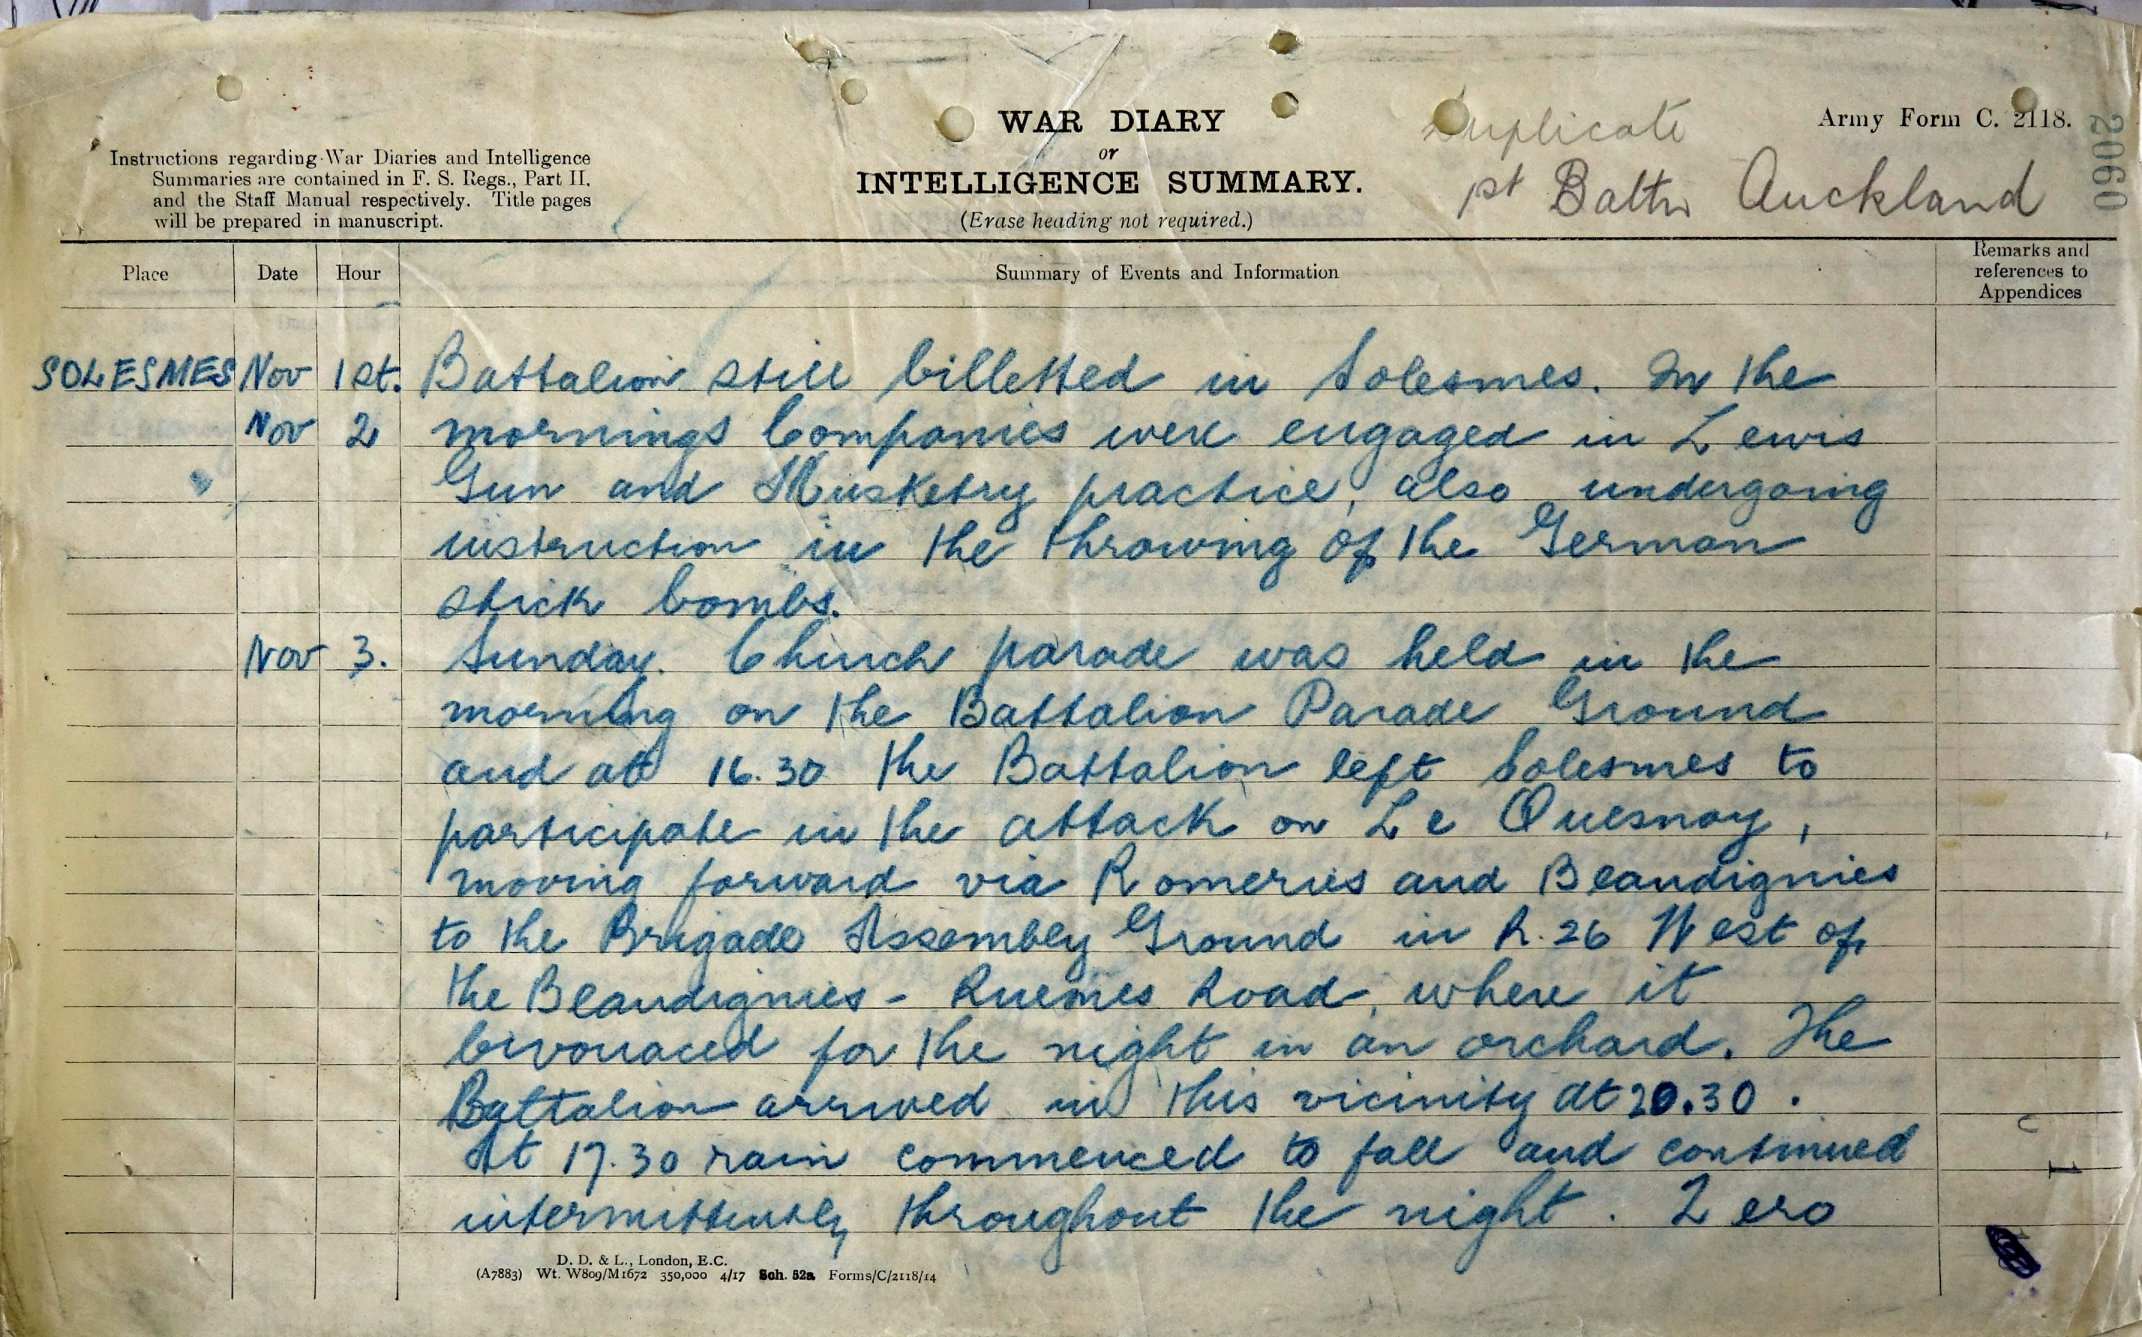 WAR DIARY
or
INTELLIGENCE SUMMARY.
(Erase heading not required.)
Instructions regarding War Diaries and Intelligence
Summaries are contained in F. S. Regs., Part II.
and the Staff Manual respectively. Title pages
will be prepared in manuscript.
Duplicate
1st Battn Auckland
Army Form C. 2118.
2060
Place Date Hour Summary of Events and Information Remarks and
references to
Appendices
SOLESMES Nov 1st. Battalion still billetted in Solesmes. In the
Nov 2 mornings Companies were engaged in Lewis
Gun and Musketry practice, also undergoing
instruction in the throwing of the German
stick bombs.
Nov 3. Sunday. Church parade was held in the
morning on the Battalion Parade Ground
and at 16.30 the Battalion left Solesmes to
participate in the attack on Le Quesnoy,
moving forward via Romeries and Beaudignies
to the Brigade Assembly Ground in R.26 West of
the Beaudignies - Ruemes Road, where it
bivouaced for the night in an orchard. The
Battalion arrived in this vicinity at 20.30.
At 17.30 rain commenced to fall and continued
intermittently throughout the night. Zero
D. D. & L., London, E.C.
(A7883) Wt. W809/M1672 350,000 4/17 Sch. 52a Forms/C/2118/14